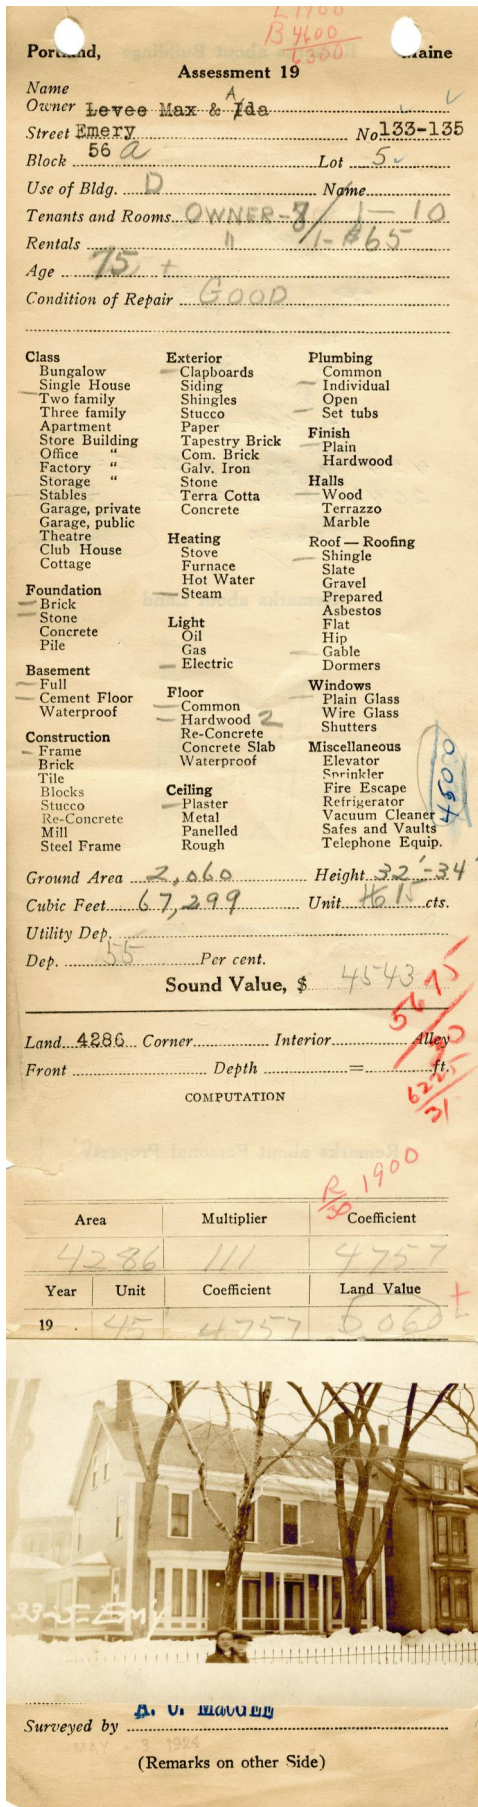 L 1900
B 4600
6300
Portland, Maine
Assessment 19
Name
Owner Levee Max & Ida A
Street Emery No 133-135
Block 56 a Lot 5
Use of Bldg. D Name
Tenants and Rooms OWNER-8/ 1-10
Rentals " /1-$65
Age 75 +
Condition of Repair GOOD
Class
Bungalow
Single House
Two family
Three family
Apartment
Store Building
Office "
Factory "
Storage "
Stables
Garage, private
Garage, public
Theatre
Club House
Cottage
Foundation
Brick
Stone
Concrete
Pile
Basement
Full
Cement Floor
Waterproof
Construction
Frame
Brick
Tile
Blocks
Stucco
Re-Concrete
Mill
Steel Frame
Exterior
Clapboards
Siding
Shingles
Stucco
Paper
Tapestry Brick
Com. Brick
Galv. Iron
Stone
Terra Cotta
Concrete
Heating
Stove
Furnace
Hot Water
Steam
Light
Oil
Gas
Electric
Floor
Common
Hardwood 2
Re-Concrete
Concrete Slab
Waterproof
Ceiling
Plaster
Metal
Panelled
Rough
Plumbing
Common
Individual
Open
Set tubs
Finish
Plain
Hardwood
Halls
Wood
Terrazzo
Marble
Roof — Roofing
Shingle
Slate
Gravel
Prepared
Asbestos
Flat
Hip
Gable
Dormers
Windows
Plain Glass
Wire Glass
Shutters
Miscellaneous
Elevator
Sprinkler
Fire Escape
Refrigerator
Vacuum Cleaner
Safes and Vaults
Telephone Equip.
Ground Area 2,060 Height 32'-34'
Cubic Feet 67,299 Unit 15 cts.
Utility Dep.
Dep. 55 Per cent.
Sound Value, $ 4543
5675
Land 4286 Corner Interior Alley
Front Depth = ft.
6225
31
COMPUTATION
R/30 1900
Area Multiplier Coefficient
4286 111 4757
Year Unit Coefficient Land Value
19 45 4757 5060
133-5-Emy
Surveyed by
MAY 3 1924
(Remarks on other Side)